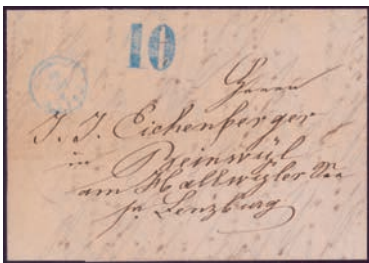 10
Herrn
J. J. Eichenberger
in Beinwyl
am Hallwyler See
pr. Lenzburg